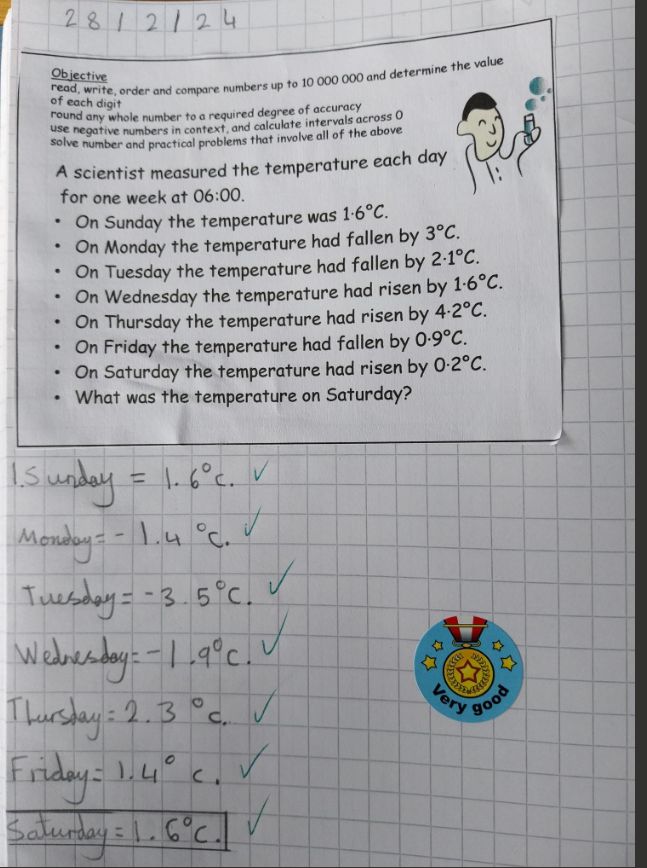 28/2/24
Objective
read, write, order and compare numbers up to 10 000 000 and determine the value
of each digit
round any whole number to a required degree of accuracy
use negative numbers in context, and calculate intervals across 0
solve number and practical problems that involve all of the above
A scientist measured the temperature each day
for one week at 06:00.
• On Sunday the temperature was 1·6°C.
• On Monday the temperature had fallen by 3°C.
• On Tuesday the temperature had fallen by 2·1°C.
• On Wednesday the temperature had risen by 1·6°C.
• On Thursday the temperature had risen by 4·2°C.
• On Friday the temperature had fallen by 0·9°C.
• On Saturday the temperature had risen by 0·2°C.
• What was the temperature on Saturday?
1.Sunday = 1.6°c. ✓
Monday = - 1.4 °c. ✓
Tuesday = -3.5°c. ✓
Wednesday = -1.9°c. ✓
Thursday = 2.3 °c. ✓
Friday = 1.4° c. ✓
Saturday = 1.6°c. ✓
Very good